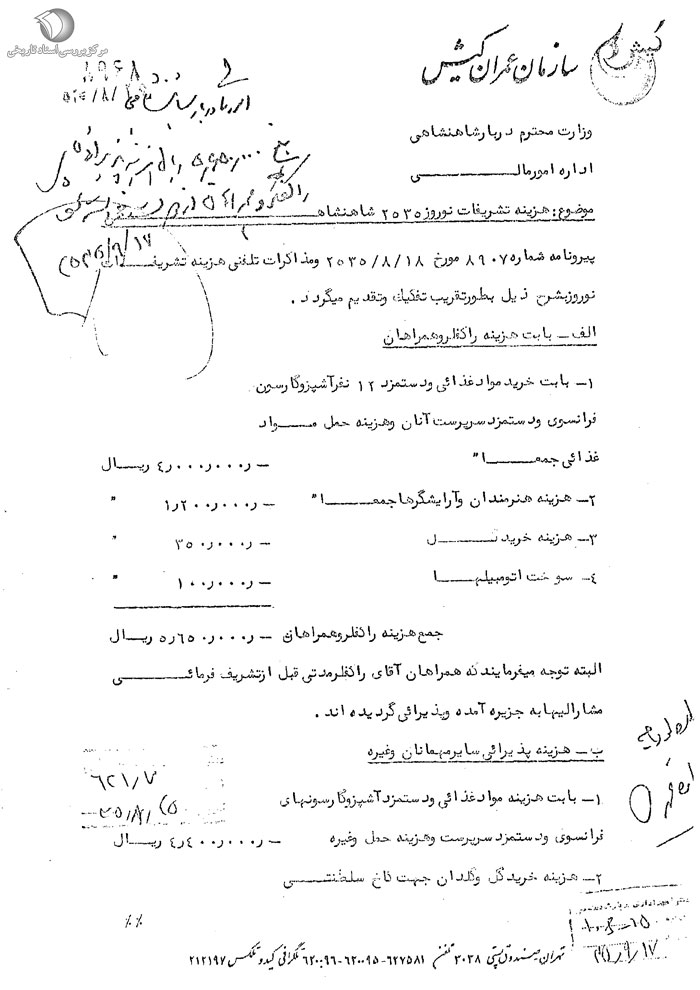 مرکز بررسی اسناد تاریخی
کیش
سازمان عمران کیش
وزارت محترم دربار شاهنشاهی
اداره امور مالی
موضوع: هزینه تشریفات نوروز ۲۵۳۵ شاهنشاهی
پیرو نامه شماره ۸۹۰۷ مورخ ۲۵۳۵/۸/۱۸ و مذاکرات تلفنی هزینه تشریفات
نوروز بشرح ذیل بطور تقریب تفکیک و تقدیم میگردد .
الف - بابت هزینه راکفلر و همراهان
۱- بابت خرید مواد غذائی و دستمزد ۱۲ نفر آشپز و گارسون
فرانسوی و دستمزد سرپرست آنان و هزینه حمل مواد
غذائی جمعا" -ر۴ر۰۰۰ر۰۰۰ ریال
۲- هزینه هنرمندان و آرایشگرها جمعا" -ر۱ر۲۰۰ر۰۰۰ "
۳- هزینه خرید گل -ر۳۵۰ر۰۰۰ "
۴- سوخت اتومبیلها -ر۱۰۰ر۰۰۰ "
جمع هزینه راکفلر و همراهان -ر۵ر۶۵۰ر۰۰۰ ریال
البته توجه میفرمایند که همراهان آقای راکفلر مدتی قبل از تشریف فرمائی
مشارالیها به جزیره آمده و پذیرائی گردیده اند .
ب - هزینه پذیرائی سایر مهمانان و غیره
۱- بابت هزینه مواد غذائی و دستمزد آشپز و گارسونهای
فرانسوی و دستمزد سرپرست و هزینه حمل و غیره -ر۴ر۴۰۰ر۰۰۰ ریال
۲- هزینه خرید گل و گلدان جهت کاخ سلطنتی
٪ ٪
تهران صندوق پستی ۳۰۳۸ تلفن ۶۲۷۵۸۱-۶۲۰۰۹۵-۶۲۰۰۹۶ تلگرافی کیدو تلکس ۲۱۲۱۹۷